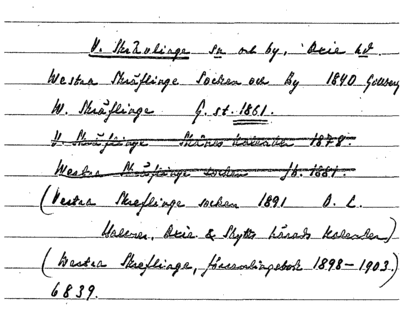 V. Skrävlinge sn och by, Oxie hd.
Westra Skräflinge Socken och By 1840 Gullberg
W. Skräflinge G. st. 1861.
V. Skräflinge Skånes kalender 1878.
Westra Skräflinge socken Jb. 1881.
(Vestra Skreflinge socken 1891 O. L.
Halerer, Oxie & Skytts härads kalender)
(Westra Skreflinge, församlingsbok 1898-1903.)
6839.